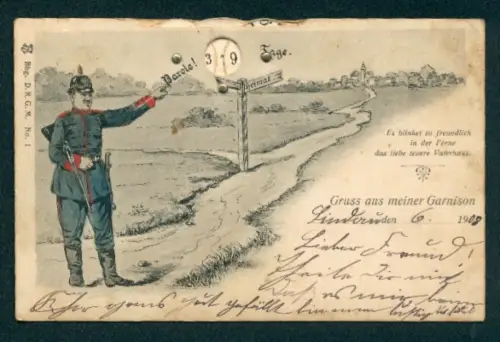 Bhg. D. R. G. M. No. 1
Parole!
3 9
Tage.
Heimat
Es blinket so freundlich
in der Ferne
das liebe teuere Vaterhaus.
Gruss aus meiner Garnison
Lindau den 6. 1908
Lieber Freund!
Theile Dir mit
daß es mir
sehr gut gefällt